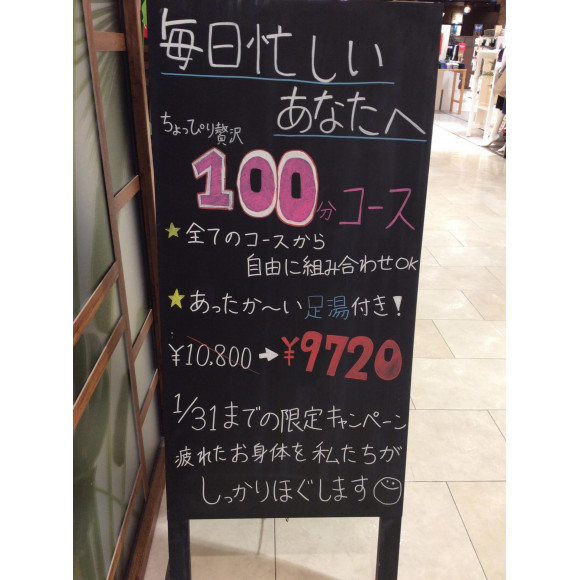 毎日忙しい
あなたへ
ちょっぴり贅沢
100分コース
★全てのコースから
自由に組み合わせOK
★あったか～い足湯付き!
¥10,800→¥9720
1/31までの限定キャンペーン
疲れたお身体を私たちが
しっかりほぐします☺